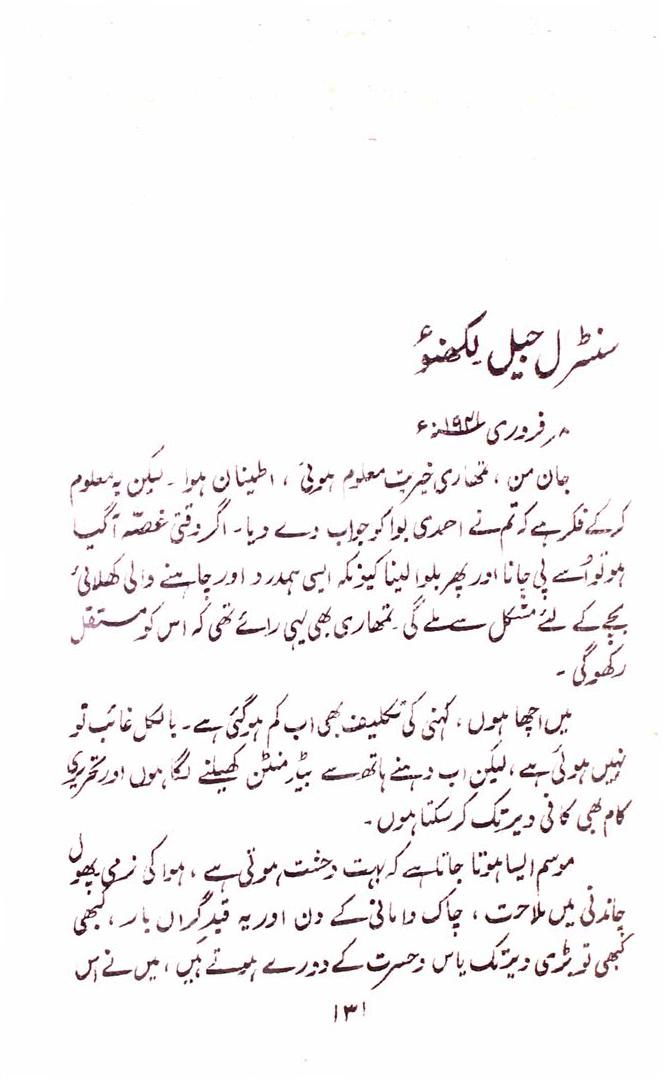 سنٹرل جیل لکھنؤ
۸ر فروری ۱۹۴۱ء
جان من ، تمھاری خیریت معلوم ہوئی ، اطینان ہوا ۔ لیکن یہ معلوم
کرکے فکر ہے کہ تم نے احمدی بوا کو جواب دے دیا ۔ اگر وقتی غصّہ آگیا
ہو تو اُسے پی جانا اور پھر بلوا لینا کیونکہ ایسی ہمدرد اور چاہنے والی کھلائی
بچے کے لئے مشکل سے ملے گی ۔ تمھاری بھی یہی رائے تھی کہ اس کو مستقل
رکھوگی ۔
میں اچھا ہوں ، کہنی کی تکلیف بھی اب کم ہوگئی ہے ۔ بالکل غائب تو
نہیں ہوئی ہے ، لیکن اب دہنے ہاتھ سے بیڈمنٹن کھیلنے لگا ہوں اور تحریری
کام بھی کافی دیر تک کر سکتا ہوں ۔
موسم ایسا ہوتا جاتا ہے کہ بہت وحشت ہوتی ہے ، ہوا کی نرمی پھول
چاندنی میں ملاحت ، چاک دامانی کے دن اور یہ قید گراں بار ، کبھی
کبھی تو بڑی دیر تک یاس و حسرت کے دورے ہوتے ہیں ، میں نے اس
۱۳۱